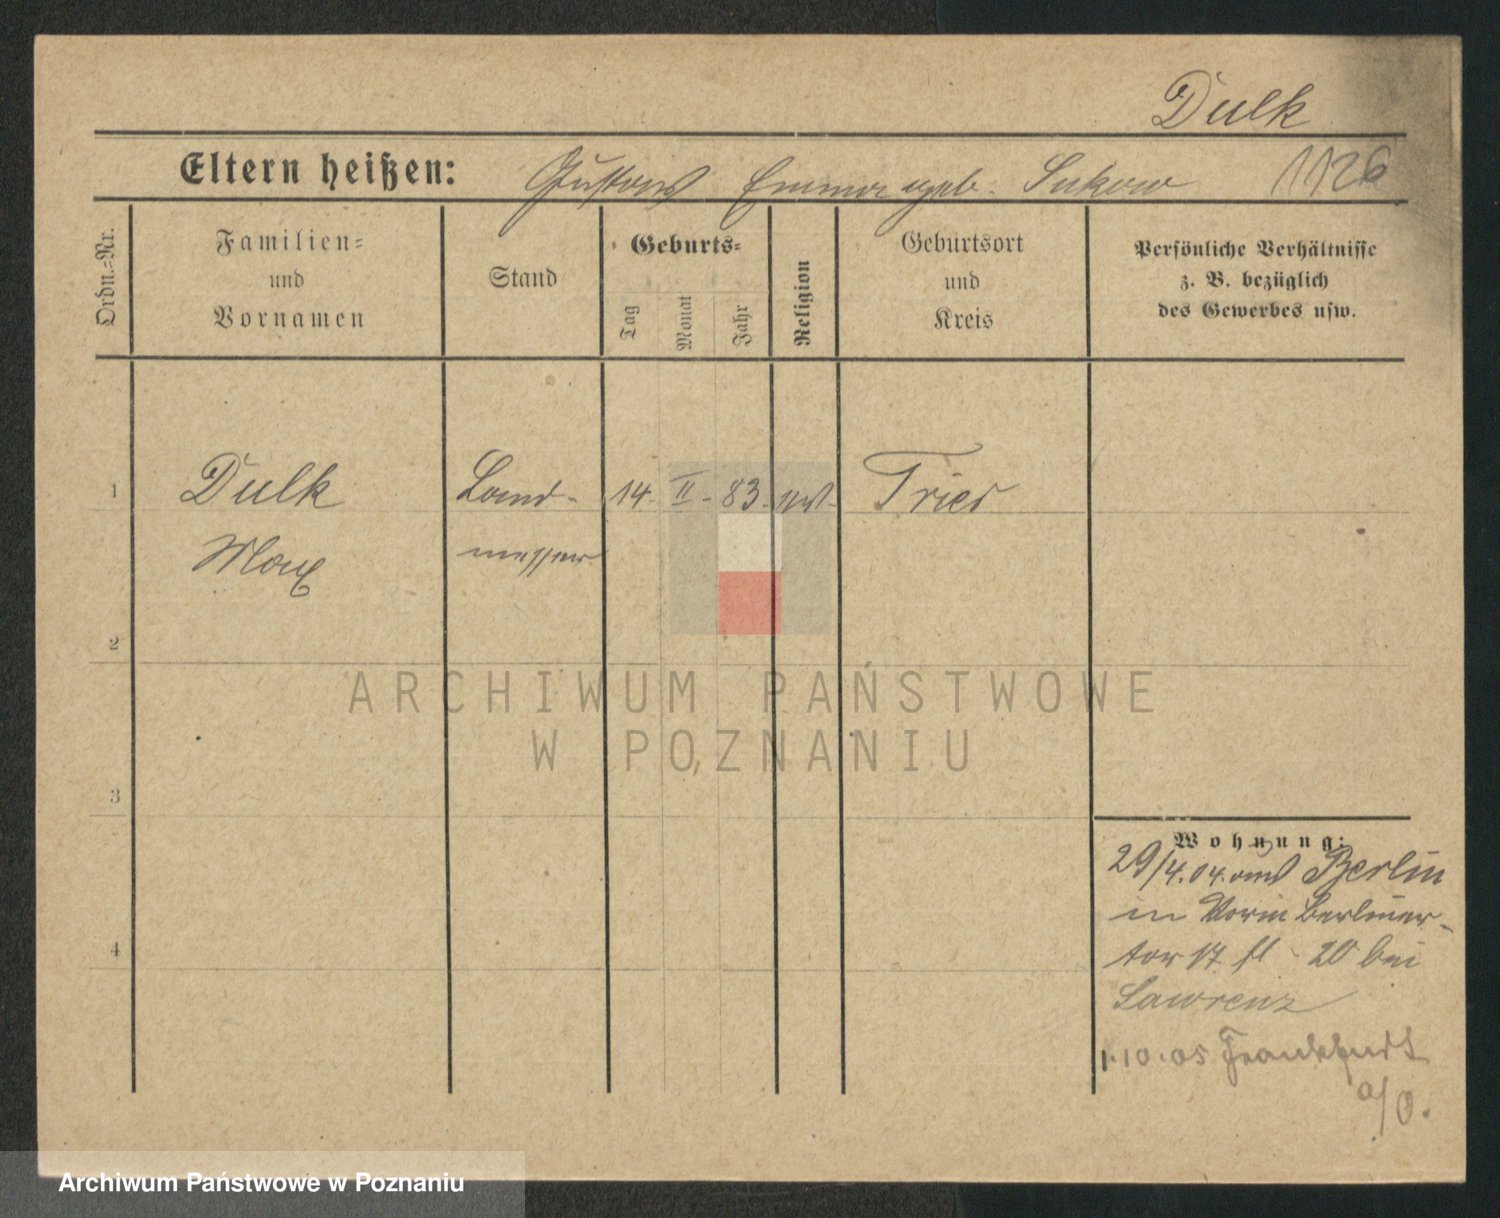 Dulk
Eltern heißen: Gustav Emma geb. Sukow 1126
Ordn.-Nr.
Familien-
und
Vornamen
Stand
Geburts-
Tag
Monat
Jahr
Religion
Geburtsort
und
Kreis
Persönliche Verhältnisse
z. B. bezüglich
des Gewerbes usw.
1 Dulk Land- 14. II. 83. Trier
Max messer
2
3
4
Wohnung:
29/4.04. aus Berlin
in Berliner-
tor 17 fl 20 bei
Lawrenz
1.10.05 Frankfurt
a/O.
ARCHIWUM PAŃSTWOWE
W POZNANIU
Archiwum Państwowe w Poznaniu